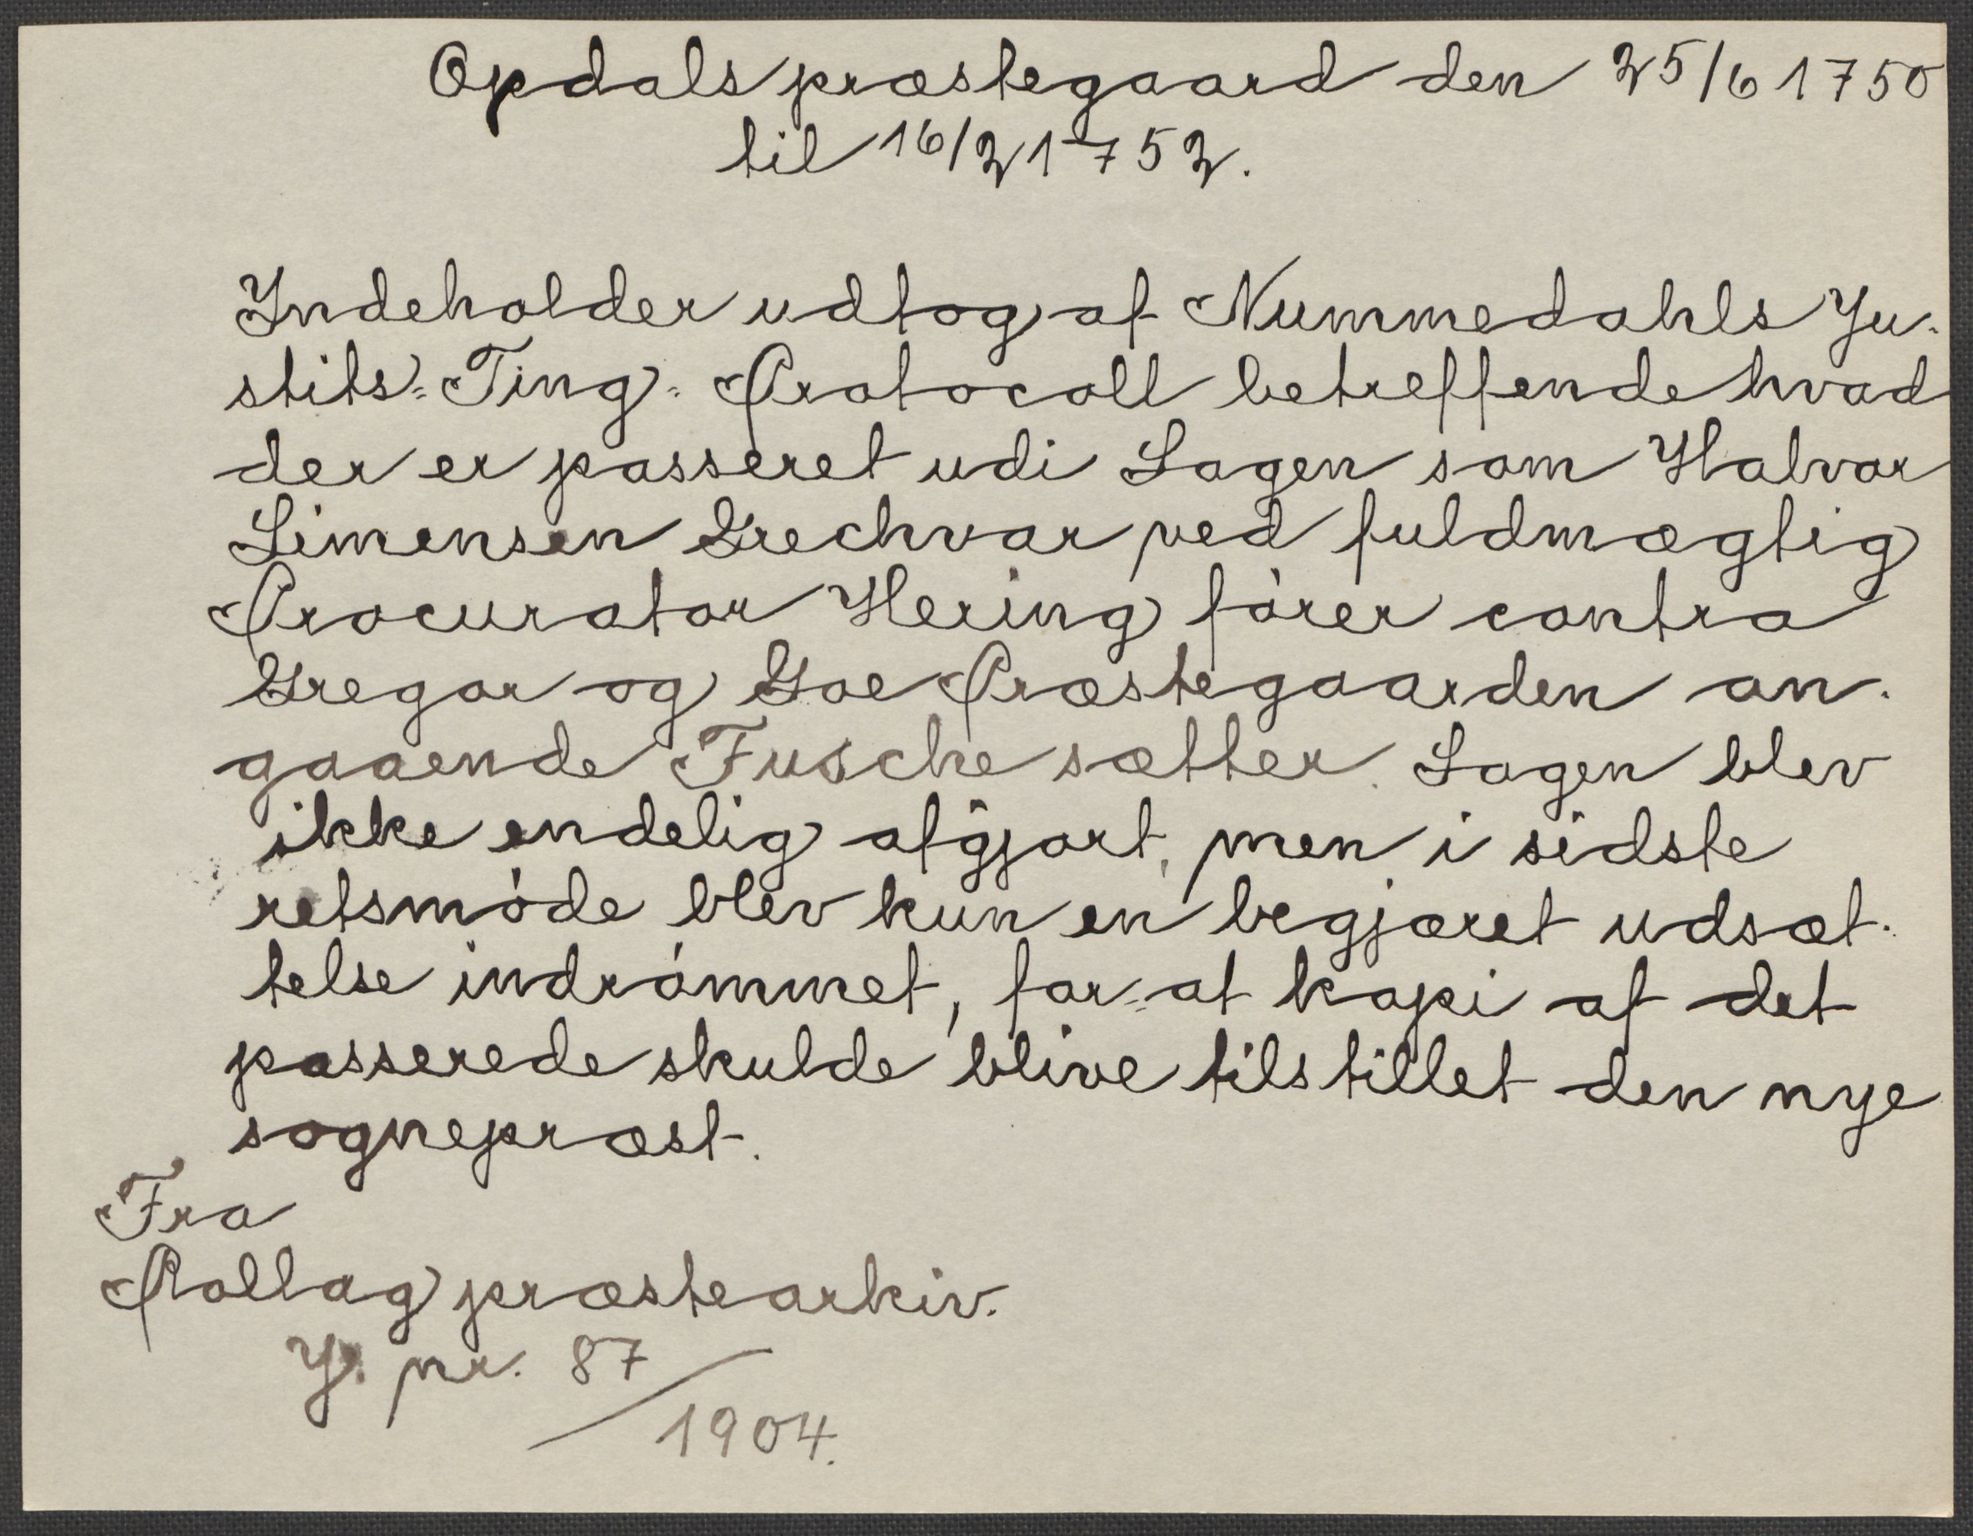 Opdals præstegaard den 25/6 1750
til 16/2 1752.
Indeholder udtog af Nummedahls Ju-
stits= Ting= Protocoll betreffende hvad
der er passeret udi Sagen som Halvor
Simensen Grechvar ved fuldmægtig
Procurator Hering fører contra
Gregar og Goe Præstegaarden an-
gaaende Fusche sætter. Sagen blev
ikke endelig afgjort, men i sidste
retsmøde blev kun en begjæret udsæt-
telse indrømmet, for=at kopi af det
passerede skulde blive tilstillet den nye
sognepræst.
Fra
Rollag præstearkiv.
J. nr. 87/1904.